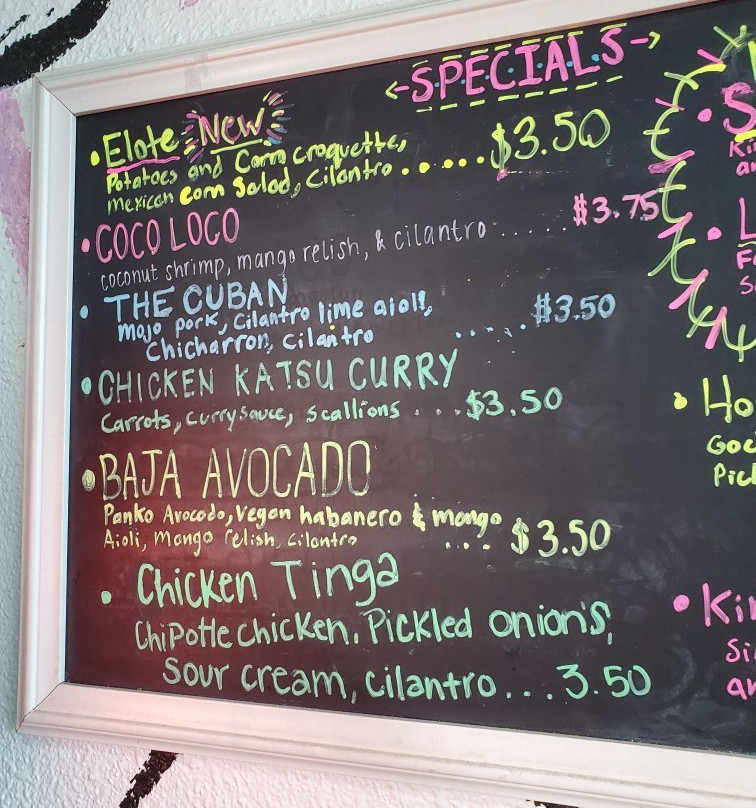 <-SPECIALS->
• Elote New
Potatoes and Corn Croquette,
mexican corn Salad, Cilantro ...... $3.50
• COCO LOCO
coconut shrimp, mango relish, & cilantro ...... $3.75
• THE CUBAN
mojo pork, Cilantro lime aioli,
Chicharron, Cilantro ...... $3.50
• CHICKEN KATSU CURRY
Carrots, Curry sauce, scallions ... $3.50
• BAJA AVOCADO
Panko Avocado, Vegan habanero & mango
Aioli, Mango relish, Cilantro .... $3.50
• Chicken Tinga
Chipotle chicken, Pickled onions,
Sour Cream, Cilantro...3.50